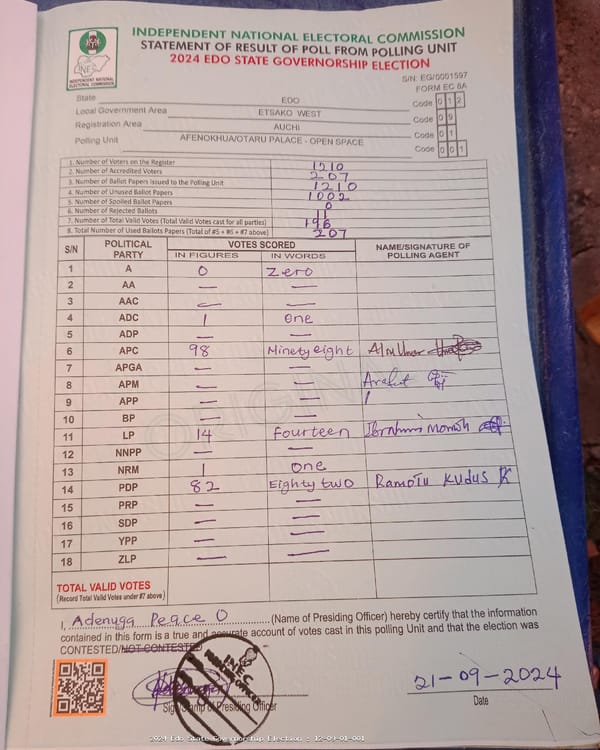 INDEPENDENT NATIONAL ELECTORAL COMMISSION
STATEMENT OF RESULT OF POLL FROM POLLING UNIT
2024 EDO STATE GOVERNORSHIP ELECTION
INEC
INDEPENDENT NATIONAL ELECTORAL COMMISSION
S/N: EG/0001597
FORM EC 8A
State EDO Code 012
Local Government Area ETSAKO WEST Code 09
Registration Area AUCHI Code 01
Polling Unit AFENOKHUA/OTARU PALACE - OPEN SPACE Code 001
1. Number of Voters on the Register 1210
2. Number of Accredited Voters 207
3. Number of Ballot Papers Issued to the Polling Unit 1210
4. Number of Unused Ballot Papers 1002
5. Number of Spoiled Ballot Papers 0
6. Number of Rejected Ballots 11
7. Number of Total Valid Votes (Total Valid Votes cast for all parties) 196
8. Total Number of Used Ballots Papers (Total of #5 + #6 + #7 above) 207
S/N POLITICAL PARTY VOTES SCORED NAME/SIGNATURE OF POLLING AGENT
IN FIGURES IN WORDS
1 A 0 Zero
2 AA — —
3 AAC — —
4 ADC 1 One
5 ADP — —
6 APC 98 Ninety eight
7 APGA — —
8 APM — — Arafat
9 APP — —
10 BP — —
11 LP 14 Fourteen
12 NNPP — —
13 NRM 1 One
14 PDP 82 Eighty two Ramotu Kudus
15 PRP — —
16 SDP — —
17 YPP — —
18 ZLP — —
TOTAL VALID VOTES
(Record Total Valid Votes under #7 above)
I, Adenuga Peace O (Name of Presiding Officer) hereby certify that the information
contained in this form is a true and accurate account of votes cast in this polling Unit and that the election was
CONTESTED/NOT CONTESTED
INEC
Sign/Stamp of Presiding Officer
21-09-2024
Date
2024 Edo State Governorship Election - 12-09-01-001